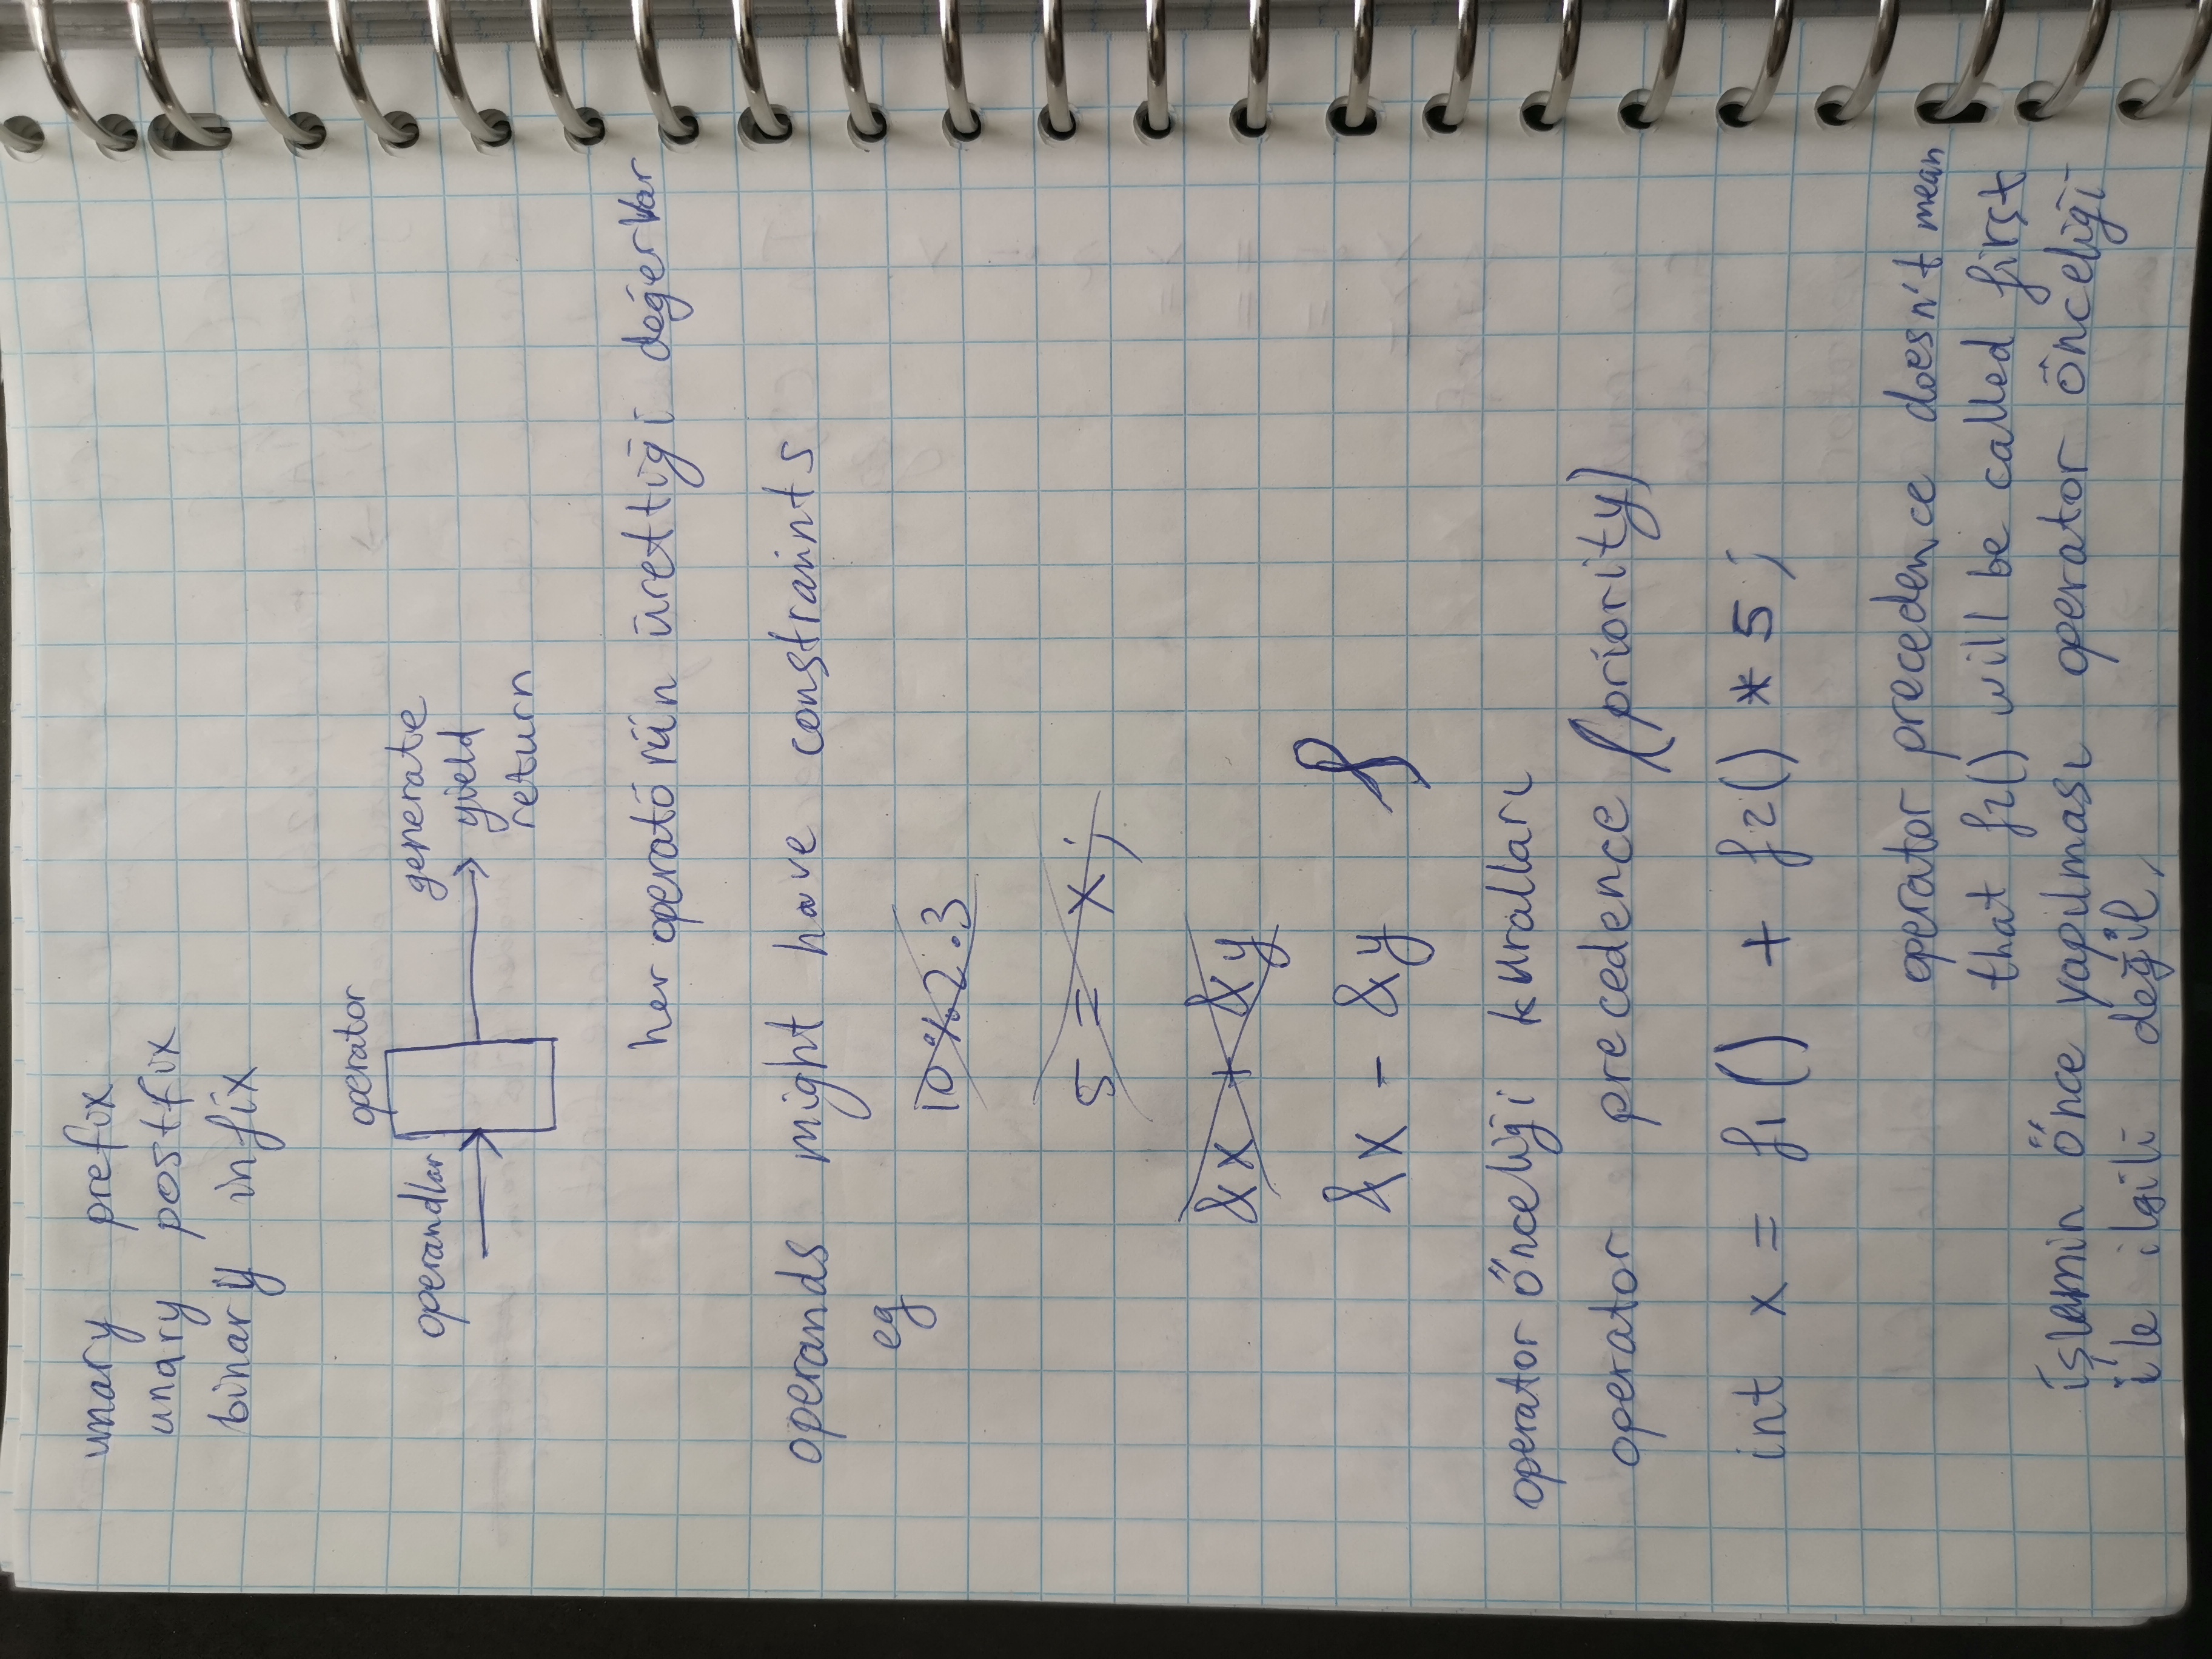 unary prefix
unary postfix
binary infix
operator
operandlar
generate
yield
return
her operatörün ürettiği değer var
operands might have constraints
eg
10 % 2.3
5 = x;
&x + &y
&x - &y
operator önceliği kuralları
operator precedence (priority)
int x = f1() + f2() * 5;
operator precedence doesn't mean
that f2() will be called first
işlemin önce yapılması operator önceliği
ile ilgili değil,